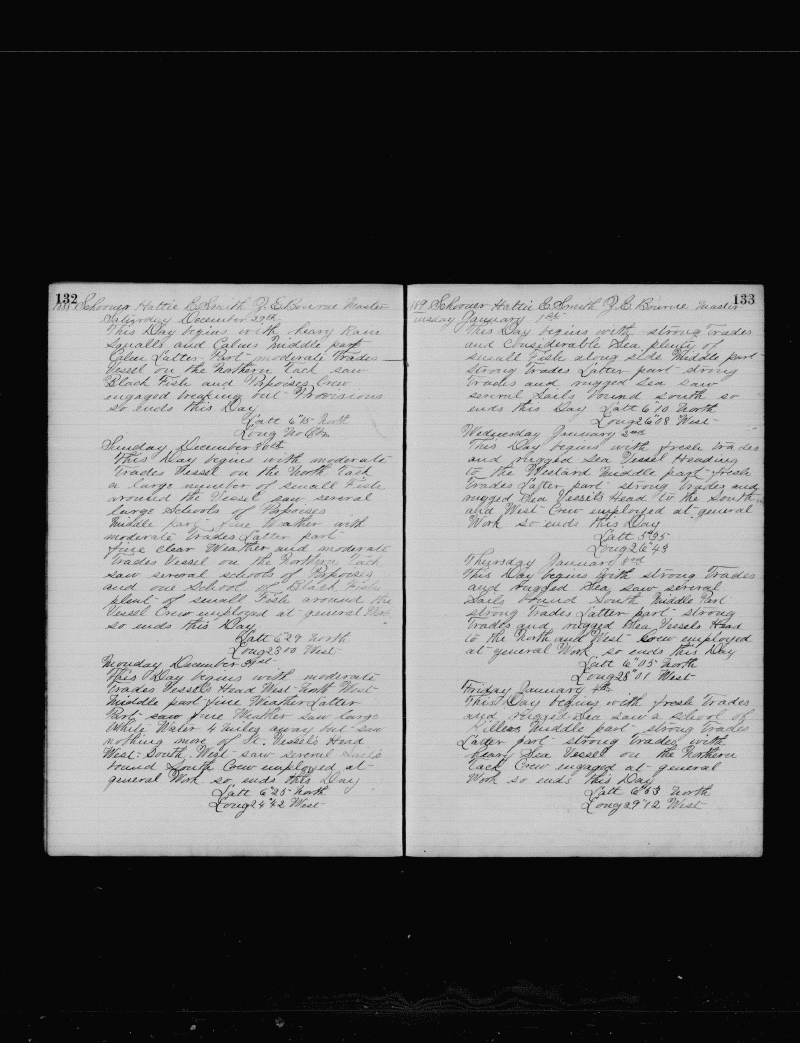 132
1888 Schooner Hattie E Smith Z. E. Bourne Master
Saturday December 29th
This Day begins with heavy Rain
Squalls and Calms Middle part
Calm Latter Part moderate Trades
Vessel on the Northern Tack saw
Black Fish and Popoises Crew
engaged breaking out Provisions
so ends this Day
Latt 6"15 North
Long No Obs
Sunday December 30th
This Day begins with moderate
Trades Vessel on the North Tack
a large number of small Fish
around the Vessel saw several
large Schools of Popoises
Middle part fine Weather with
moderate Trades Latter part
fine clear Weather and moderate
Trades Vessel on the Northern Tack
saw several schools of Popoises
and one School of Black Fish
plenty of small Fish around the
Vessel Crew employed at general Work
so ends this Day
Latt 6"29 North
Long 23"00 West
Monday December 31st
This Day begins with moderate
Trades Vessels Head West North West
Middle part fine Weather Latter
Part saw fine Weather saw large
White Water 4 miles away but saw
nothing more of it. Vessels Head
West. South. West saw several Sails
bound South Crew employed at
general Work so ends this Day
Latt 6"25 North
Long 24"42 West
133
1889 Schooner Hattie E Smith Z. E. Bourne Master
Tuesday January 1st
This Day begins with strong Trades
and considerable Sea plenty of
small Fish along side Middle part
strong Trades Latter part strong
Trades and rugged Sea saw
several Sails bound south so
ends this Day Latt 6"10 North
Long 26"08 West
Wednesday January 2nd
This Day begins with fresh trades
and rugged Sea Vessel Heading
to the Westard Middle part fresh
Trades Latter part strong Trades and
rugged Sea Vessels Head to the South
and West Crew employed at general
Work so ends this Day
Latt 5"95
Long 26"43
Thursday January 3rd
This Day begins with strong Trades
and rugged Sea saw several
Sails bound South Middle Part
strong Trades Latter part strong
Trades and rugged Sea Vessels Head
to the North and West Crew employed
at general Work so ends this Day
Latt 6"05 North
Long 28"01 West
Friday January 4th
This Day begins with fresh Trades
and rugged Sea saw a School of
Killers Middle part strong Trades
Latter part strong Trades with
heavy Sea Vessel on the Northern
Tack Crew engaged at general
Work so ends this Day
Latt 6"53 North
Long 29"12 West